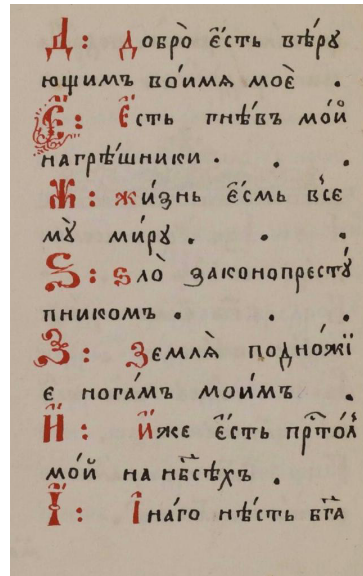 Д: добро̀ є҆́сть вѣ́рꙋ
ющимъ во́имѧ моѐ .
Є҆: є҆́сть гнѣ́въ мо́й
нагрѣ́шники . . .
Ж: жи́знь є҆́смь все
мꙋ̀ ми́рꙋ . . .
Ѕ: ѕло̀ законопрестꙋ́
пникомъ . . .
З: землѧ̀ подно́жї
е нога́мъ мои́мъ .
Й: и҆́же є҆́сть прⷭ҇то́лъ
мо́й на нб҃сѣ́хъ .
Ї: і҆на́го нѣ́сть бг҃а